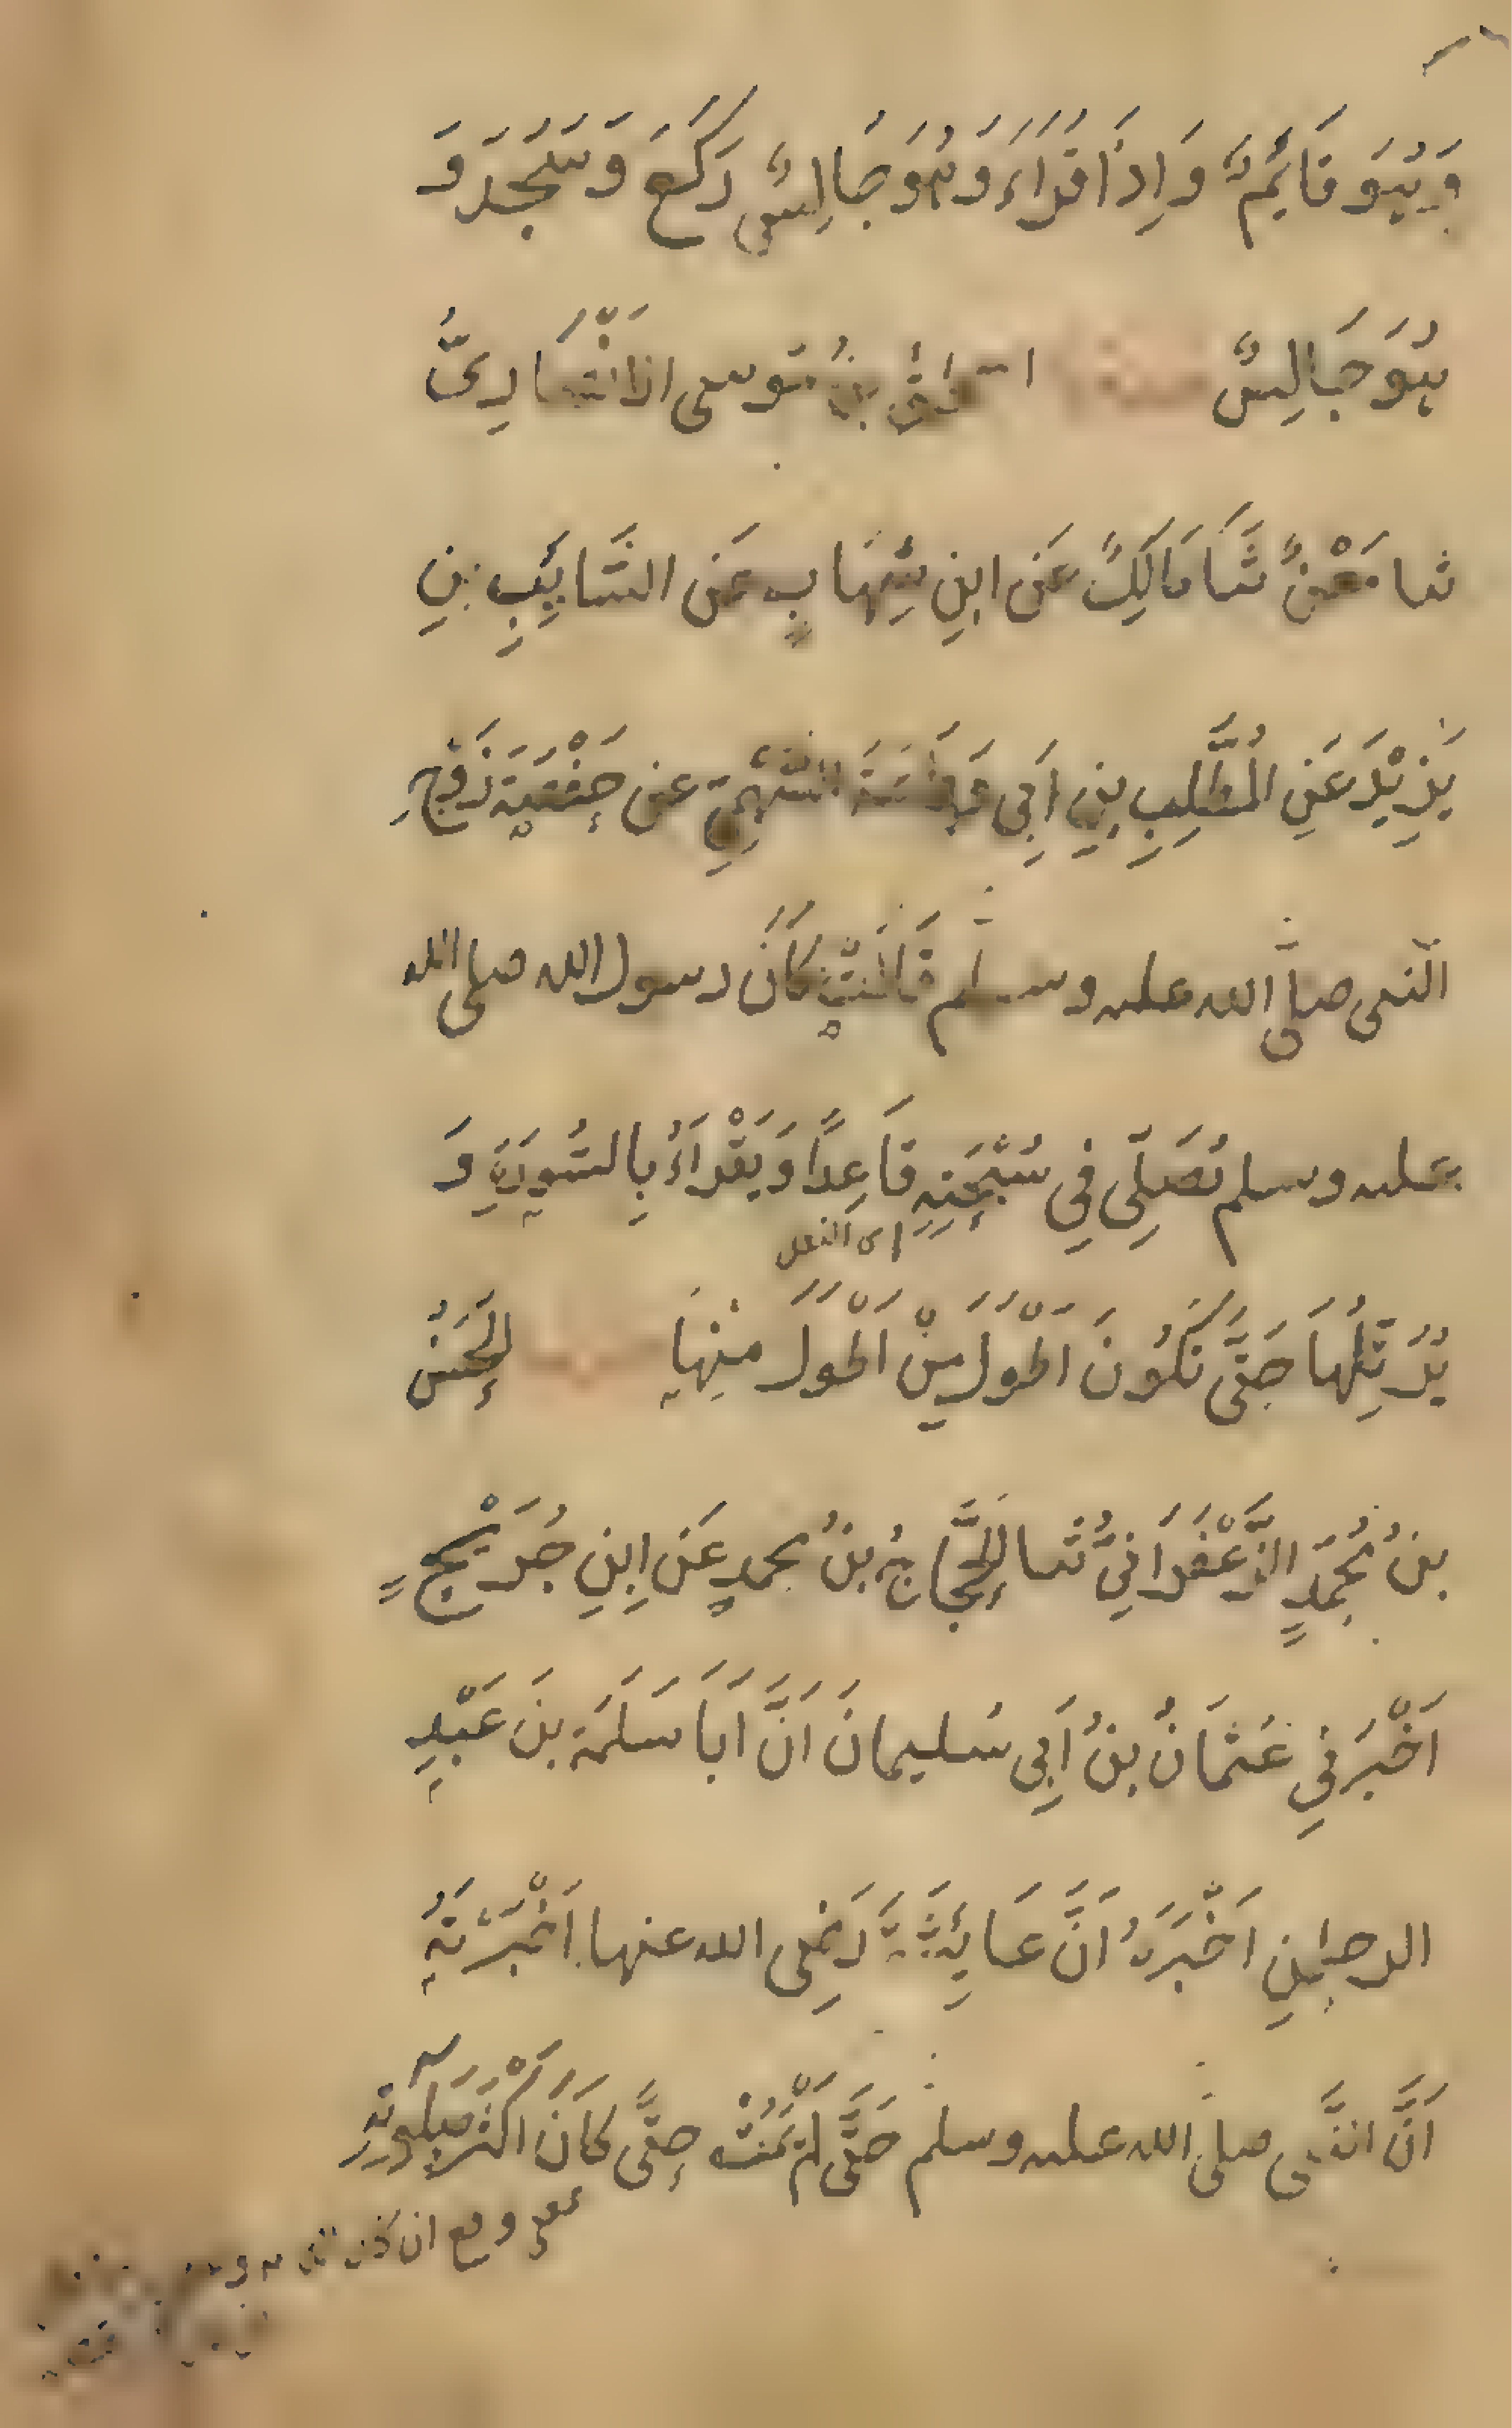 وَهُوَ قَائِمٌ وَاِذَا قَرَاَءَ وَهُوَ جَالِسٌ رَكَعَ وَسَجَدَ وَ
هُوَ جَالِسٌ اسحٰقُ بنُ مُوسى الاَنْصَارِىُّ
ثنا مَعْنٌ ثَنَا مَالِكٌ عَنِ ابنِ شِهَابٍ عَنِ السَّائِبِ بنِ
يَزِيْدَ عَنِ الْمُطَّلِبِ بنِ اَبِى وَدَاعَةَ السَّهْمِيِّ عن حَفْصَةَ زَوْجِ
النّبى صلّى الله عليه وسلم قَالَتْ كَانَ رسول الله صلى الله
عليه وسلم يُصَلِّى فِي سُبْحَتِهِ قَاعِدًا وَيَقْرَاَءُ بِالسُّورَةِ وَ
اى النفل
يُرَتِّلُهَا حَتَّى تَكُونَ اَطْوَلَ مِنْ اَطْوَلَ مِنْهَا الحَسَنُ
بنُ مُحمّدٍ الزَّعْفَرَانِيُّ ثنا الحَجَّاجُ بنُ محمدٍ عَنِ ابنِ جُرَيْجٍ
اَخْبَرَنِي عُثمَانُ بنُ اَبِى سُليمانَ اَنَّ اَبَا سَلَمَةَ بنَ عَبْدِ
الرحمنِ اَخْبَرَهُ اَنَّ عَائِشَةَ رَضِى الله عنها اَخْبَرَتْهُ
اَنَّ النَّبى صلىَّ الله عليه وسلم حَتَّى لَمْ يَمُتْ حتَّى كَانَ اَكْثَرُ صَلَوتِهِ